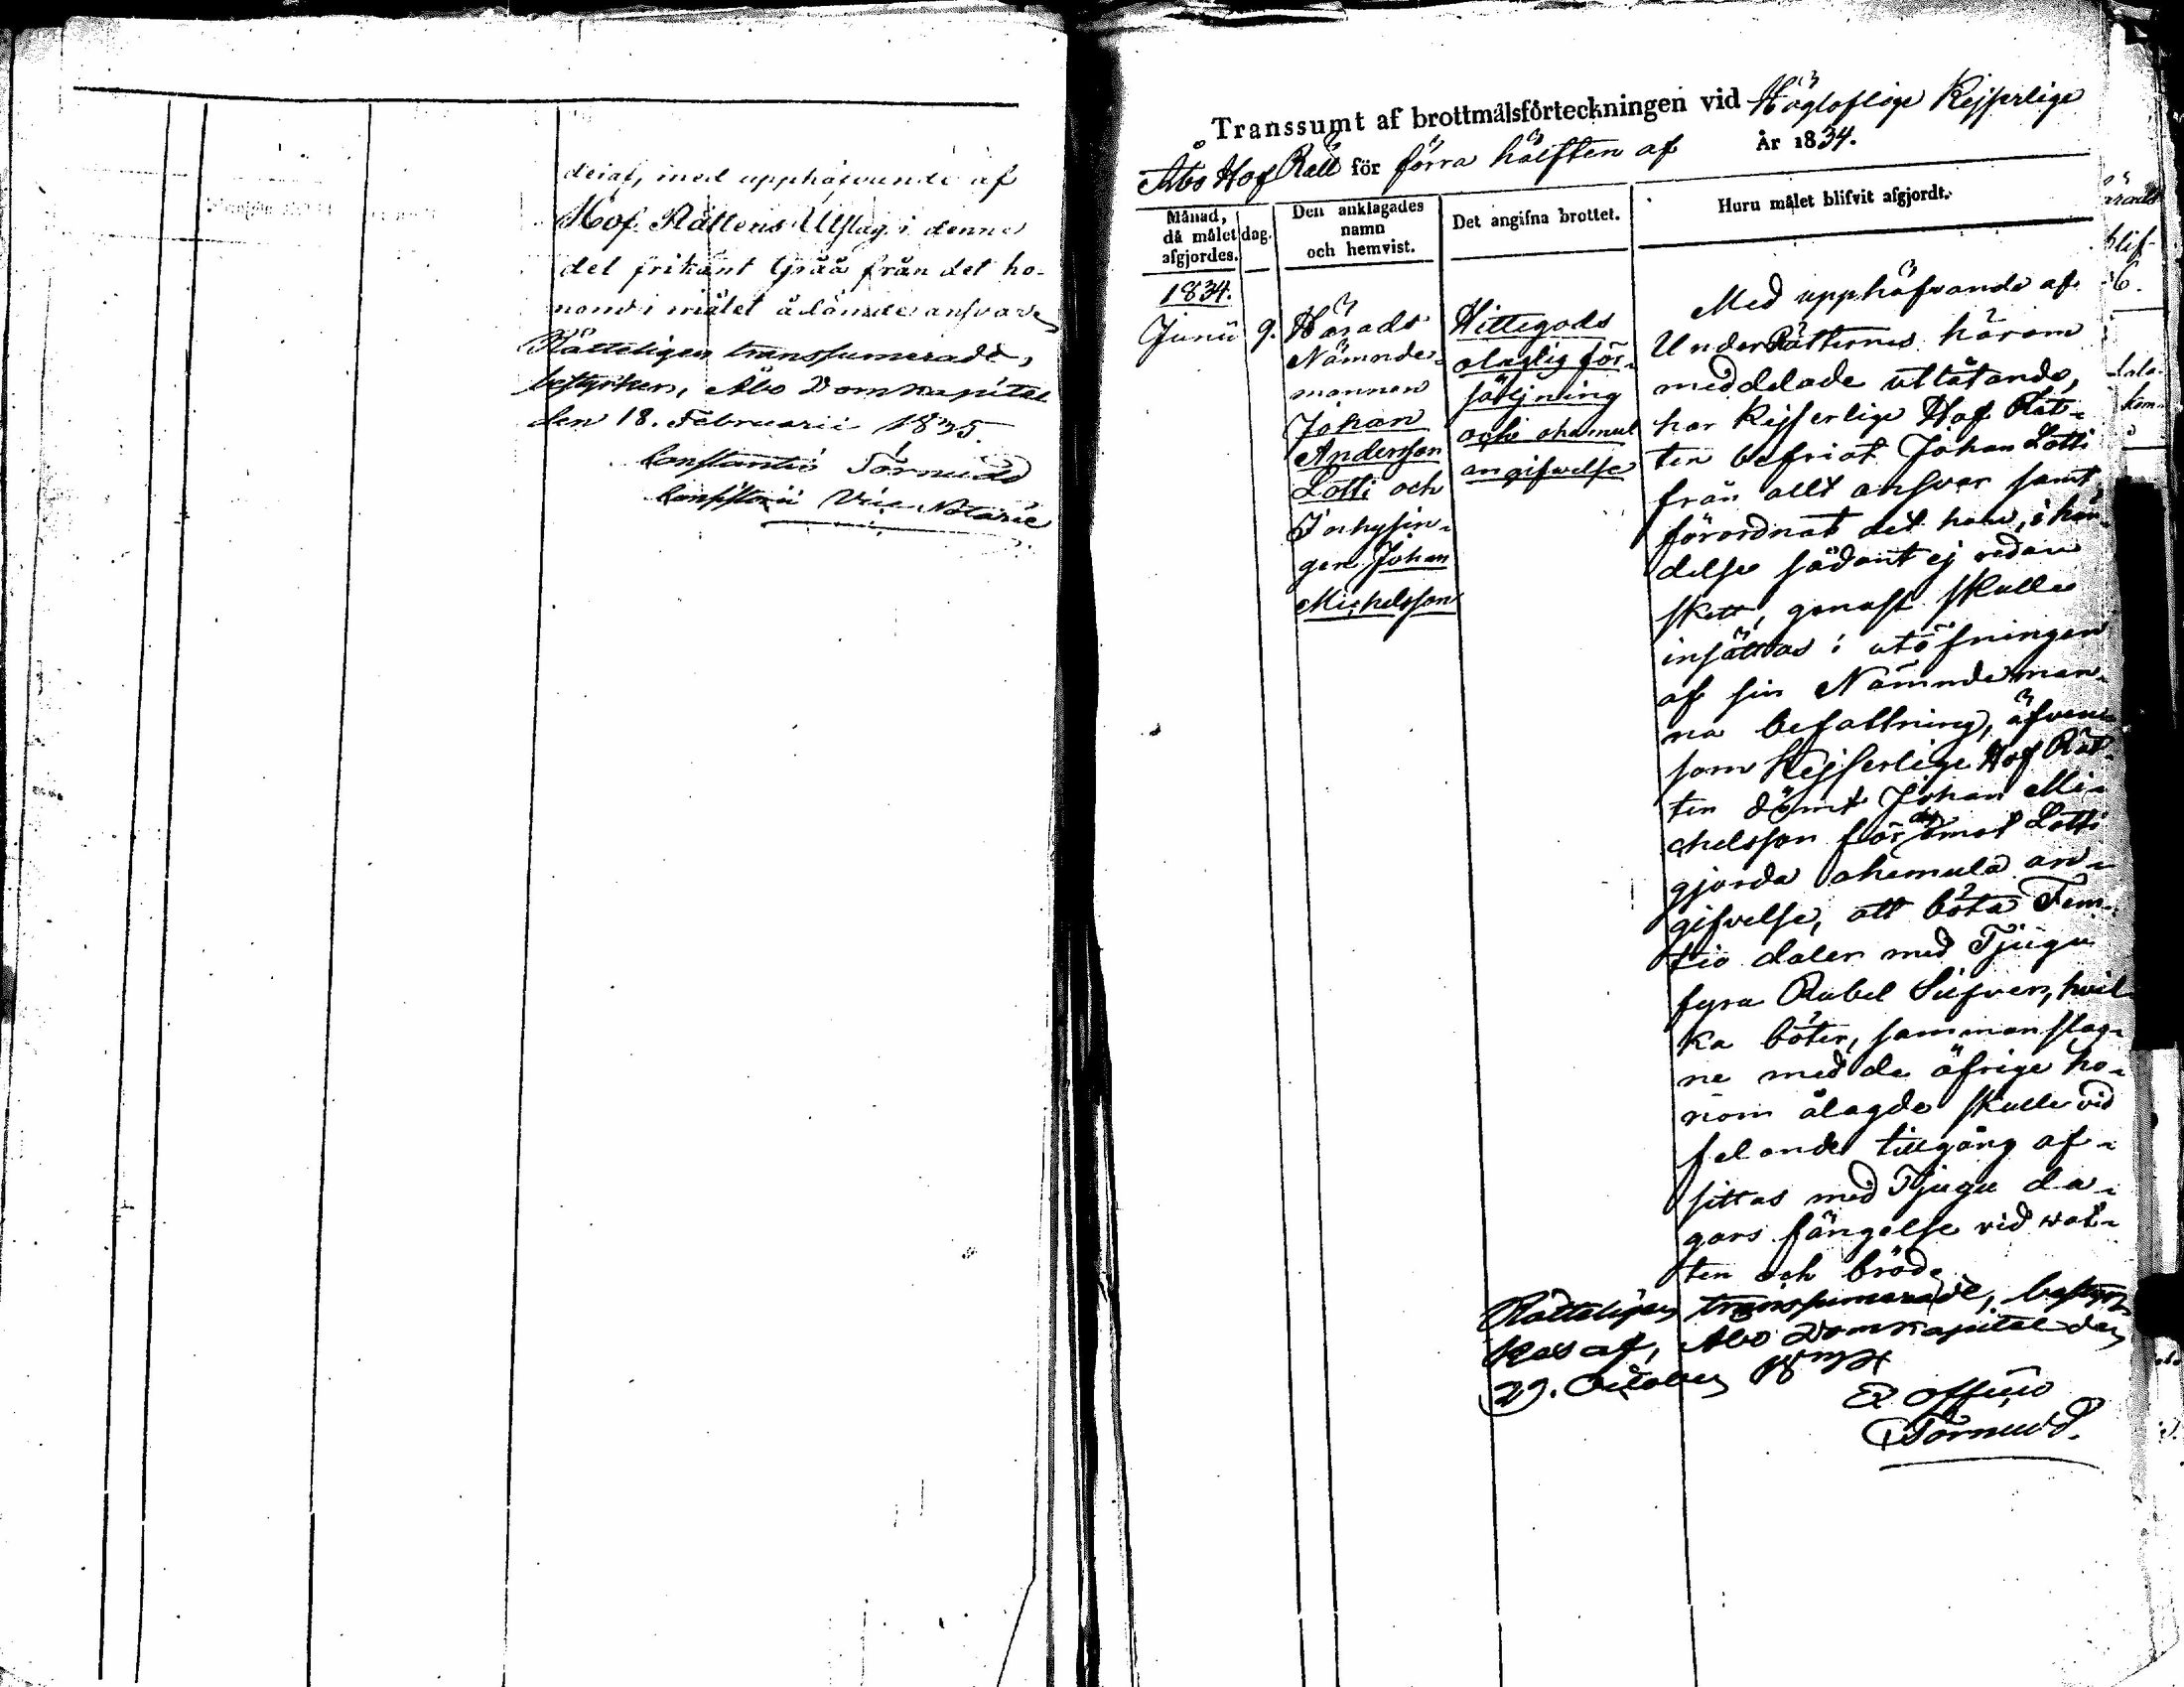 deraf, med upphäfvande af
Hof Rättens Utslag i denna
del frikänt Gråå från det ho-
nom i målet ådömde ansvar
Rätteligen transsumeradt,
bestyrker, Åbo Domkapitel
den 18. Februarii 1835.
Constantin Törnudd
Consistorii Vice Notarie
Transsumt af brottmålsförteckningen vid Högloflige Kejserlige
Åbo Hof Rätt för förra hälften af År 1834.
Månad, då målet afgjordes.
dag.
Den anklagades namn och hemvist.
Det angifna brottet.
Huru målet blifvit afgjordt.
1834.
Junii
9.
Härads
Nämnde-
mannen
Johan
Andersson
Lotti och
Inhysin-
gen Johan
Michelsson
Hittegods
olaglig för-
säljning
och ohemul
angifvelse
Med upphäfvande af
UnderRätternes härom
meddelade utlåtande,
har Kejserlige Hof Rät-
ten befriat Johan Lotti
från allt ansvar samt
förordnat det han, i hän-
delse sådant ej redan
skett, genast skulle
insättas i utöfningen
af sin Nämndeman-
na befattning, äfven
som Kejserlige Hof Rät-
ten dömt Johan Mi-
chelsson för des emot Lotti
gjorda ohemula an-
gifvelse, att böta Fem-
tio daler med Tjugu
fyra Rubel Silfver, hvil-
ka böter, sammanslag-
ne med de öfrige ho-
nom ålagde skulle vid
felande tillgång af-
sittas med Tjugu da-
gars fängelse vid wat-
ten och bröd.
Rätteligen transsumeradt, bestyr-
kas af, Åbo Domkapitel den
29. October 1834
Ex officio
C Törnudd.